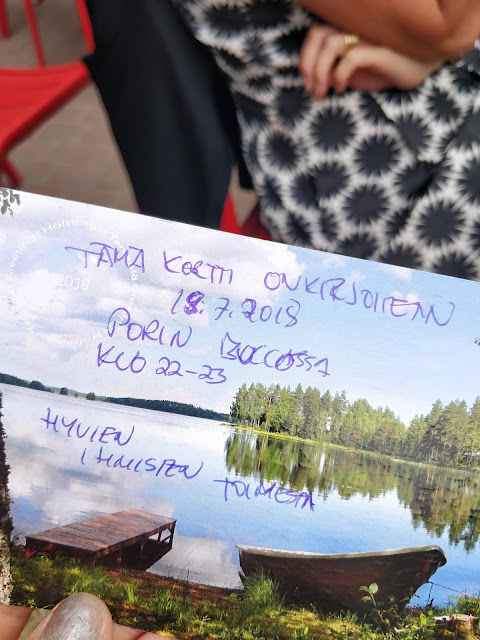 TÄMÄ KORTTI ON KIRJOITETTU
18.7.2018
PORIN
KLO 22-23
HYVIEN
IHMISTEN TOIMESTA
2018